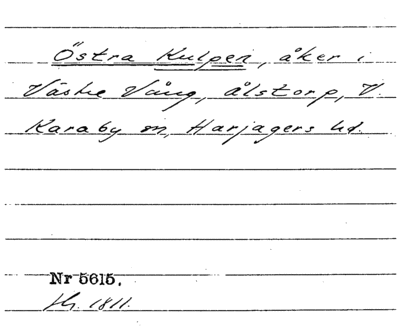 Östra Kulpen, åker i
Västre Vång, Ålstorp, V.
Karaby sn, Harjagers hd.
Nr 5615.
1811.